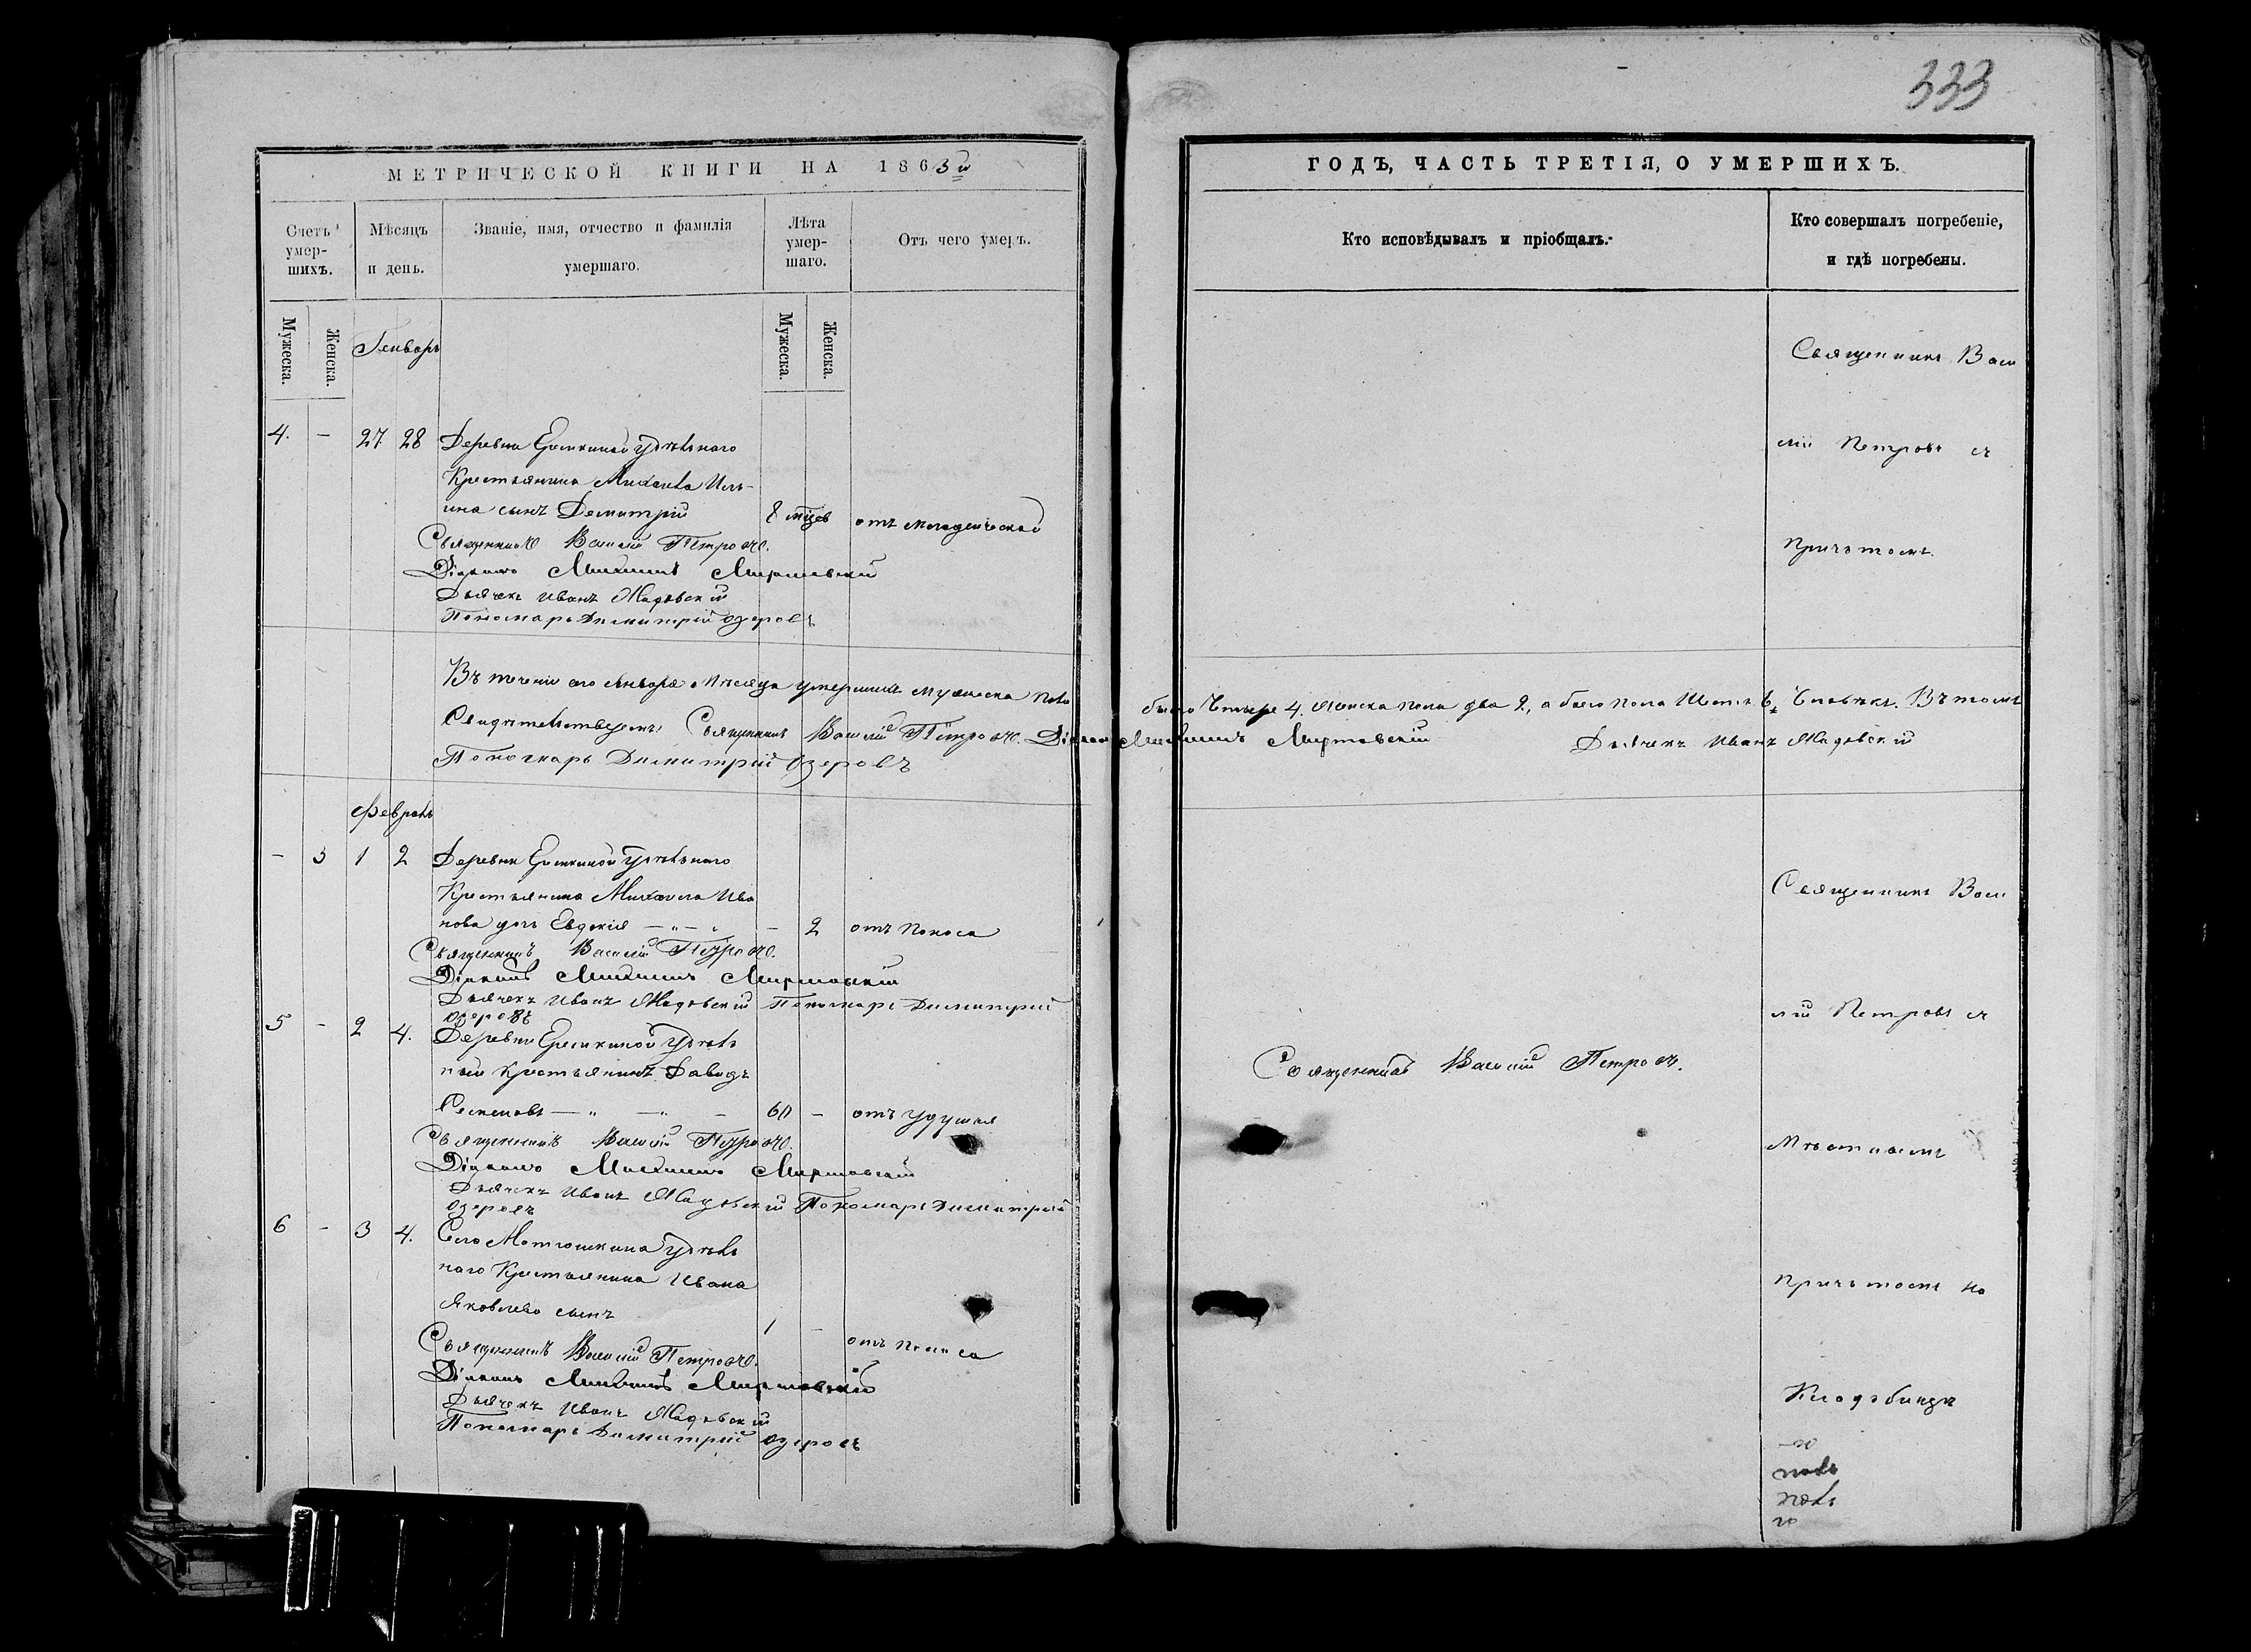 333
МЕТРИЧЕСКОЙ КНИГИ НА 1863й
Счетъ умер-шихъ.
Мѣсяцъ и день.
Званіе, имя, отчество и фамилія умершаго.
Лѣта умер-шаго.
Отъ чего умеръ.
Мужеска.
Женска.
Мужеска.
Женска.
Генварь
4. – 27 28 Деревни Еремкиной удѣльнаго
Крестьянина Михаила Иль-
ина сынъ Димитрій 8 мѣцев отъ младенческой
Священникъ Василій Петровъ.
Діаконъ Михаилъ Миртовскій
Дьячекъ Иванъ
Пономарь Димитрій Озеровъ
Въ теченіи сего Января Мѣсяца умершихъ мужеска пола
Свидѣтельствуемъ Священникъ Василій Петровъ. Діаконъ
Пономарь Димитрій Озеровъ
Февраль
– 3 1 2 Деревни Еремкиной удѣльнаго
Крестьянина Михаила Ива
нова дочь Евдокія – 2 отъ поноса
Священникъ Василій Петровъ.
Діаконъ Михаилъ Миртовскій
Дьячекъ Иванъ Пономарь Димитрій
Озеровъ
5 – 2 4. Деревни Еремкиной удѣль
ный крестьянинъ Давидъ
Семеновъ 60 – отъ удушья
Священникъ Василій Петровъ.
Діаконъ Михаилъ Миртовскій
Дьячекъ Иванъ Пономарь Димитрій
Озеровъ
6 – 3 4. Села Мотюшкина удѣль
наго Крестьянина Ивана
Яковлева сынъ
1 – отъ поноса
Священникъ Василій Петровъ.
Діаконъ Михаилъ Миртовскій
Дьячекъ Иванъ
Пономарь Димитрій Озеровъ
ГОДЪ, ЧАСТЬ ТРЕТІЯ, О УМЕРШИХЪ.
Кто исповѣдывалъ и пріобщалъ.
Кто совершалъ погребеніе,
и гдѣ погребены.
Священникъ Васи
лій Петровъ съ
Причтомъ.
было Четыре 4. Женска пола два 2, а обоего пола Шесть 6, Человѣкъ. Въ томъ
Михаилъ Миртовскій Дьячекъ Иванъ
Священникъ Васи
лій Петровъ съ
Священникъ Василій Петровъ.
Мѣстнымъ
Причтомъ на
Кладбищѣ